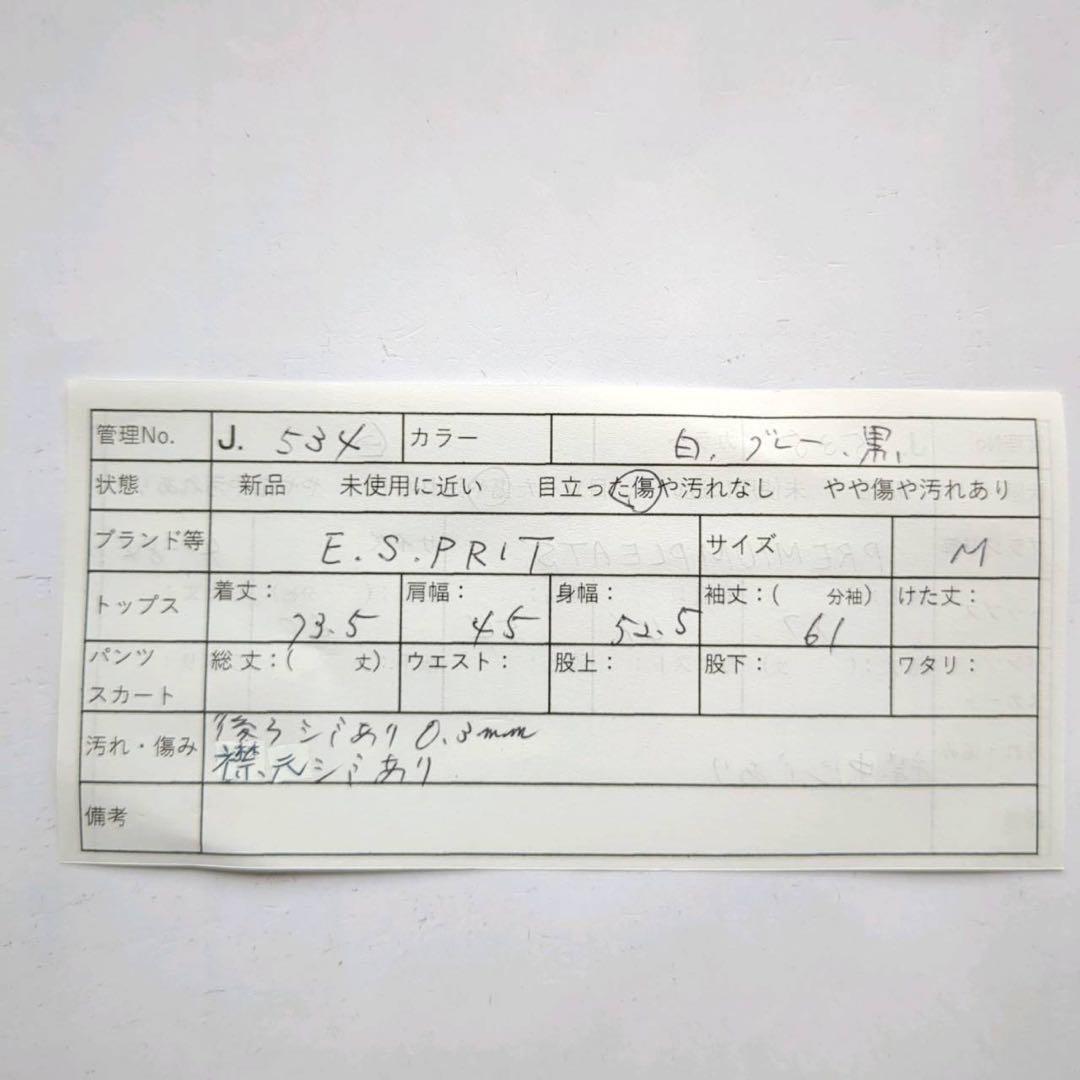 管理No. J. 534 カラー 白、グレー、黒、
状態 新品 未使用に近い 目立った傷や汚れなし やや傷や汚れあり
ブランド等 E.S.PRIT サイズ M
トップス 着丈: 73.5 肩幅: 45 身幅: 52.5 袖丈:( 分袖) 61 けた丈:
パンツ スカート 総丈:( 丈) ウエスト: 股上: 股下: ワタリ:
汚れ・傷み 後ろシミあり 0.3mm
襟元シミあり
備考